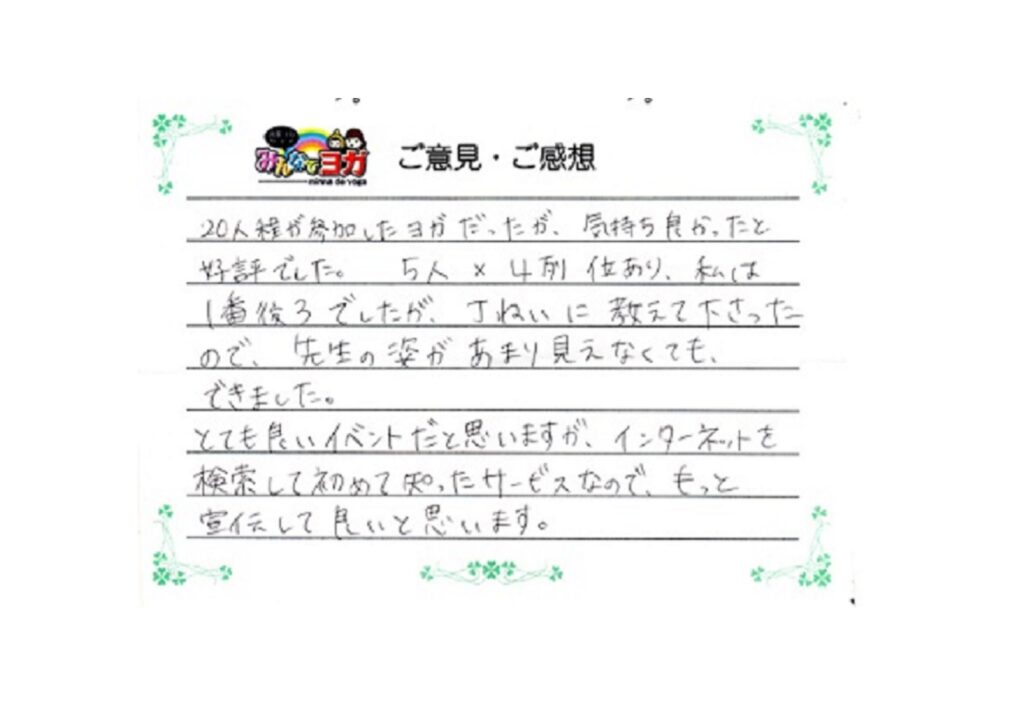 みんなでヨガ
minna de yoga
ご意見・ご感想
20人程が参加したヨガだったが、気持ち良かったと
好評でした。 5人×4列位あり、私は
1番後ろでしたが、丁ねいに教えて下さった
ので、先生の姿があまり見えなくても、
できました。
とても良いイベントだと思いますが、インターネットを
検索して初めて知ったサービスなので、もっと
宣伝して良いと思います。